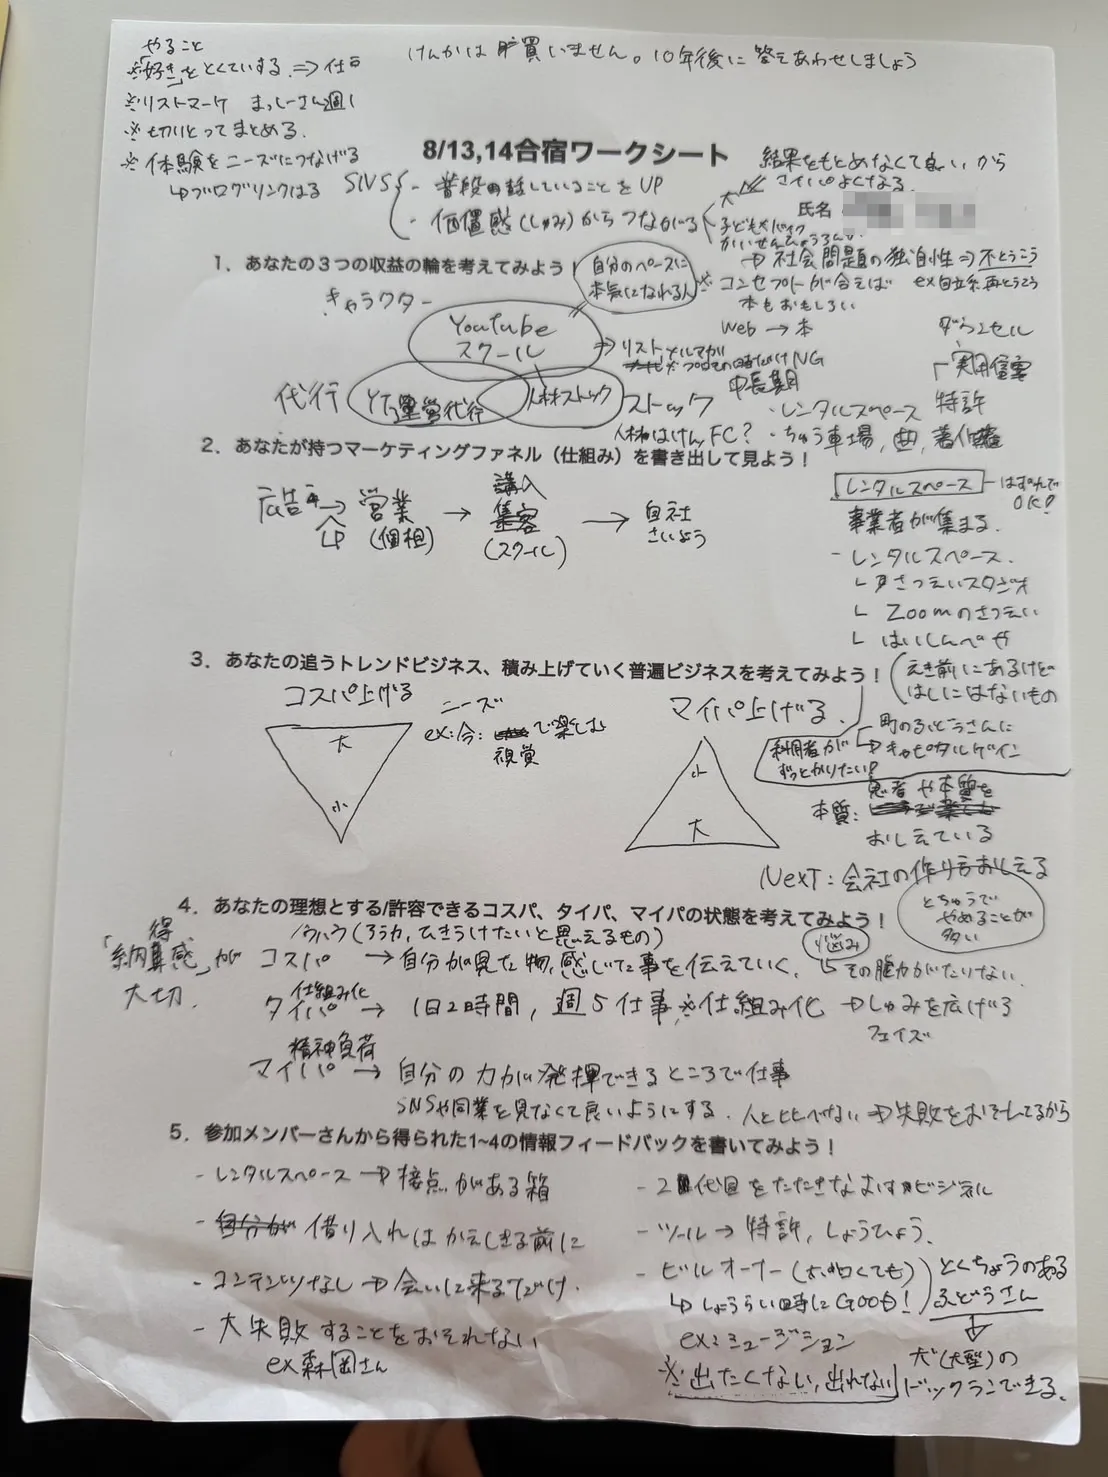 やること
けんかは買いません。10年後に答えあわせしましょう
※「好き」をとくていする ⇒ 仕事
※リストマーケ まっしーさん週1
※切りとってまとめる.
※体験をニーズにつなげる
↳ブログリンクはる
8/13,14合宿ワークシート
結果をもとめなくて良いから
マイパよくなる.
SNS
- 普段の話していることをUP
- 価値感(しゅみ)からつながる
犬
子どもやバイク
氏名
→ 社会問題の独自性⇒不どうさん
1．あなたの3つの収益の輪を考えてみよう！
自分のペースに
本気になれる人
※コンセプトが合えば
本もおもしろい
キャラクター
Youtube
スクール
Web → 本
⇒ リスト メルマガ
NG
中長期
代行
YT運営代行
人材ストック
ストック
人材はけんFC?
ダウンセル
実用信案
特許
・レンタルスペース
・ちゅう車場, 曲, 著作権
2．あなたが持つマーケティングファネル（仕組み）を書き出して見よう！
広告 → 営業 → 購入 → 自社
LP
(個相)
集客
(スクール)
さいよう
レンタルスペース
はすんで
OK!
事業者が集まる.
- レンタルスペース.
∟ さつえいスタジオ
∟ Zoomのさつえい
∟ はいしんべや
3．あなたの追うトレンドビジネス、積み上げていく普遍ビジネスを考えてみよう！
えき前にあるけど
はしにはないもの
コスパ上げる
ニーズ
ex:今: で楽しむ
視覚
大
小
マイパ上げる.
小
大
町のふどうさんに
→キャピタルゲイン
利用者が
ずっとかりたい!
本質:
思者や本質を
おしえている
Next: 会社の作り方おしえる
4．あなたの理想とする/許容できるコスパ、タイパ、マイパの状態を考えてみよう！
とちゅうで
やめることが
多い
「納得感」が
大切.
ノウハウ(ろう力, ひきうけたいと思えるもの)
コスパ → 自分が見た物, 感じた事を伝えていく.
悩み
↳その脳力がたりない
仕組み化
タイパ → 1日2時間, 週5仕事 ※仕組み化 → しゅみを広げる
フェイズ
精神負荷
マイパ → 自分の力が発揮できるところで仕事
SNSや同業を見なくて良いようにする. 人とヒヒべない → 失敗をおそれてるから
5．参加メンバーさんから得られた1~4の情報フィードバックを書いてみよう！
- レンタルスペース → 接点がある箱
- 借り入れはかえしきる前に
- コンテンツなし → 会いに来るだけ.
- 大失敗することをおそれない
ex森岡さん
- 2代目をたたきなおすビジネス
- ツール → 特許, しょうひょう.
- ビルオーナー(木白くても)
↳ しょうらい時にGOOD!
とくちょうのある
ふどうさん
ex: ミュージション
※ 出たくない, 出れない
犬(大型)の
ドックランできる.